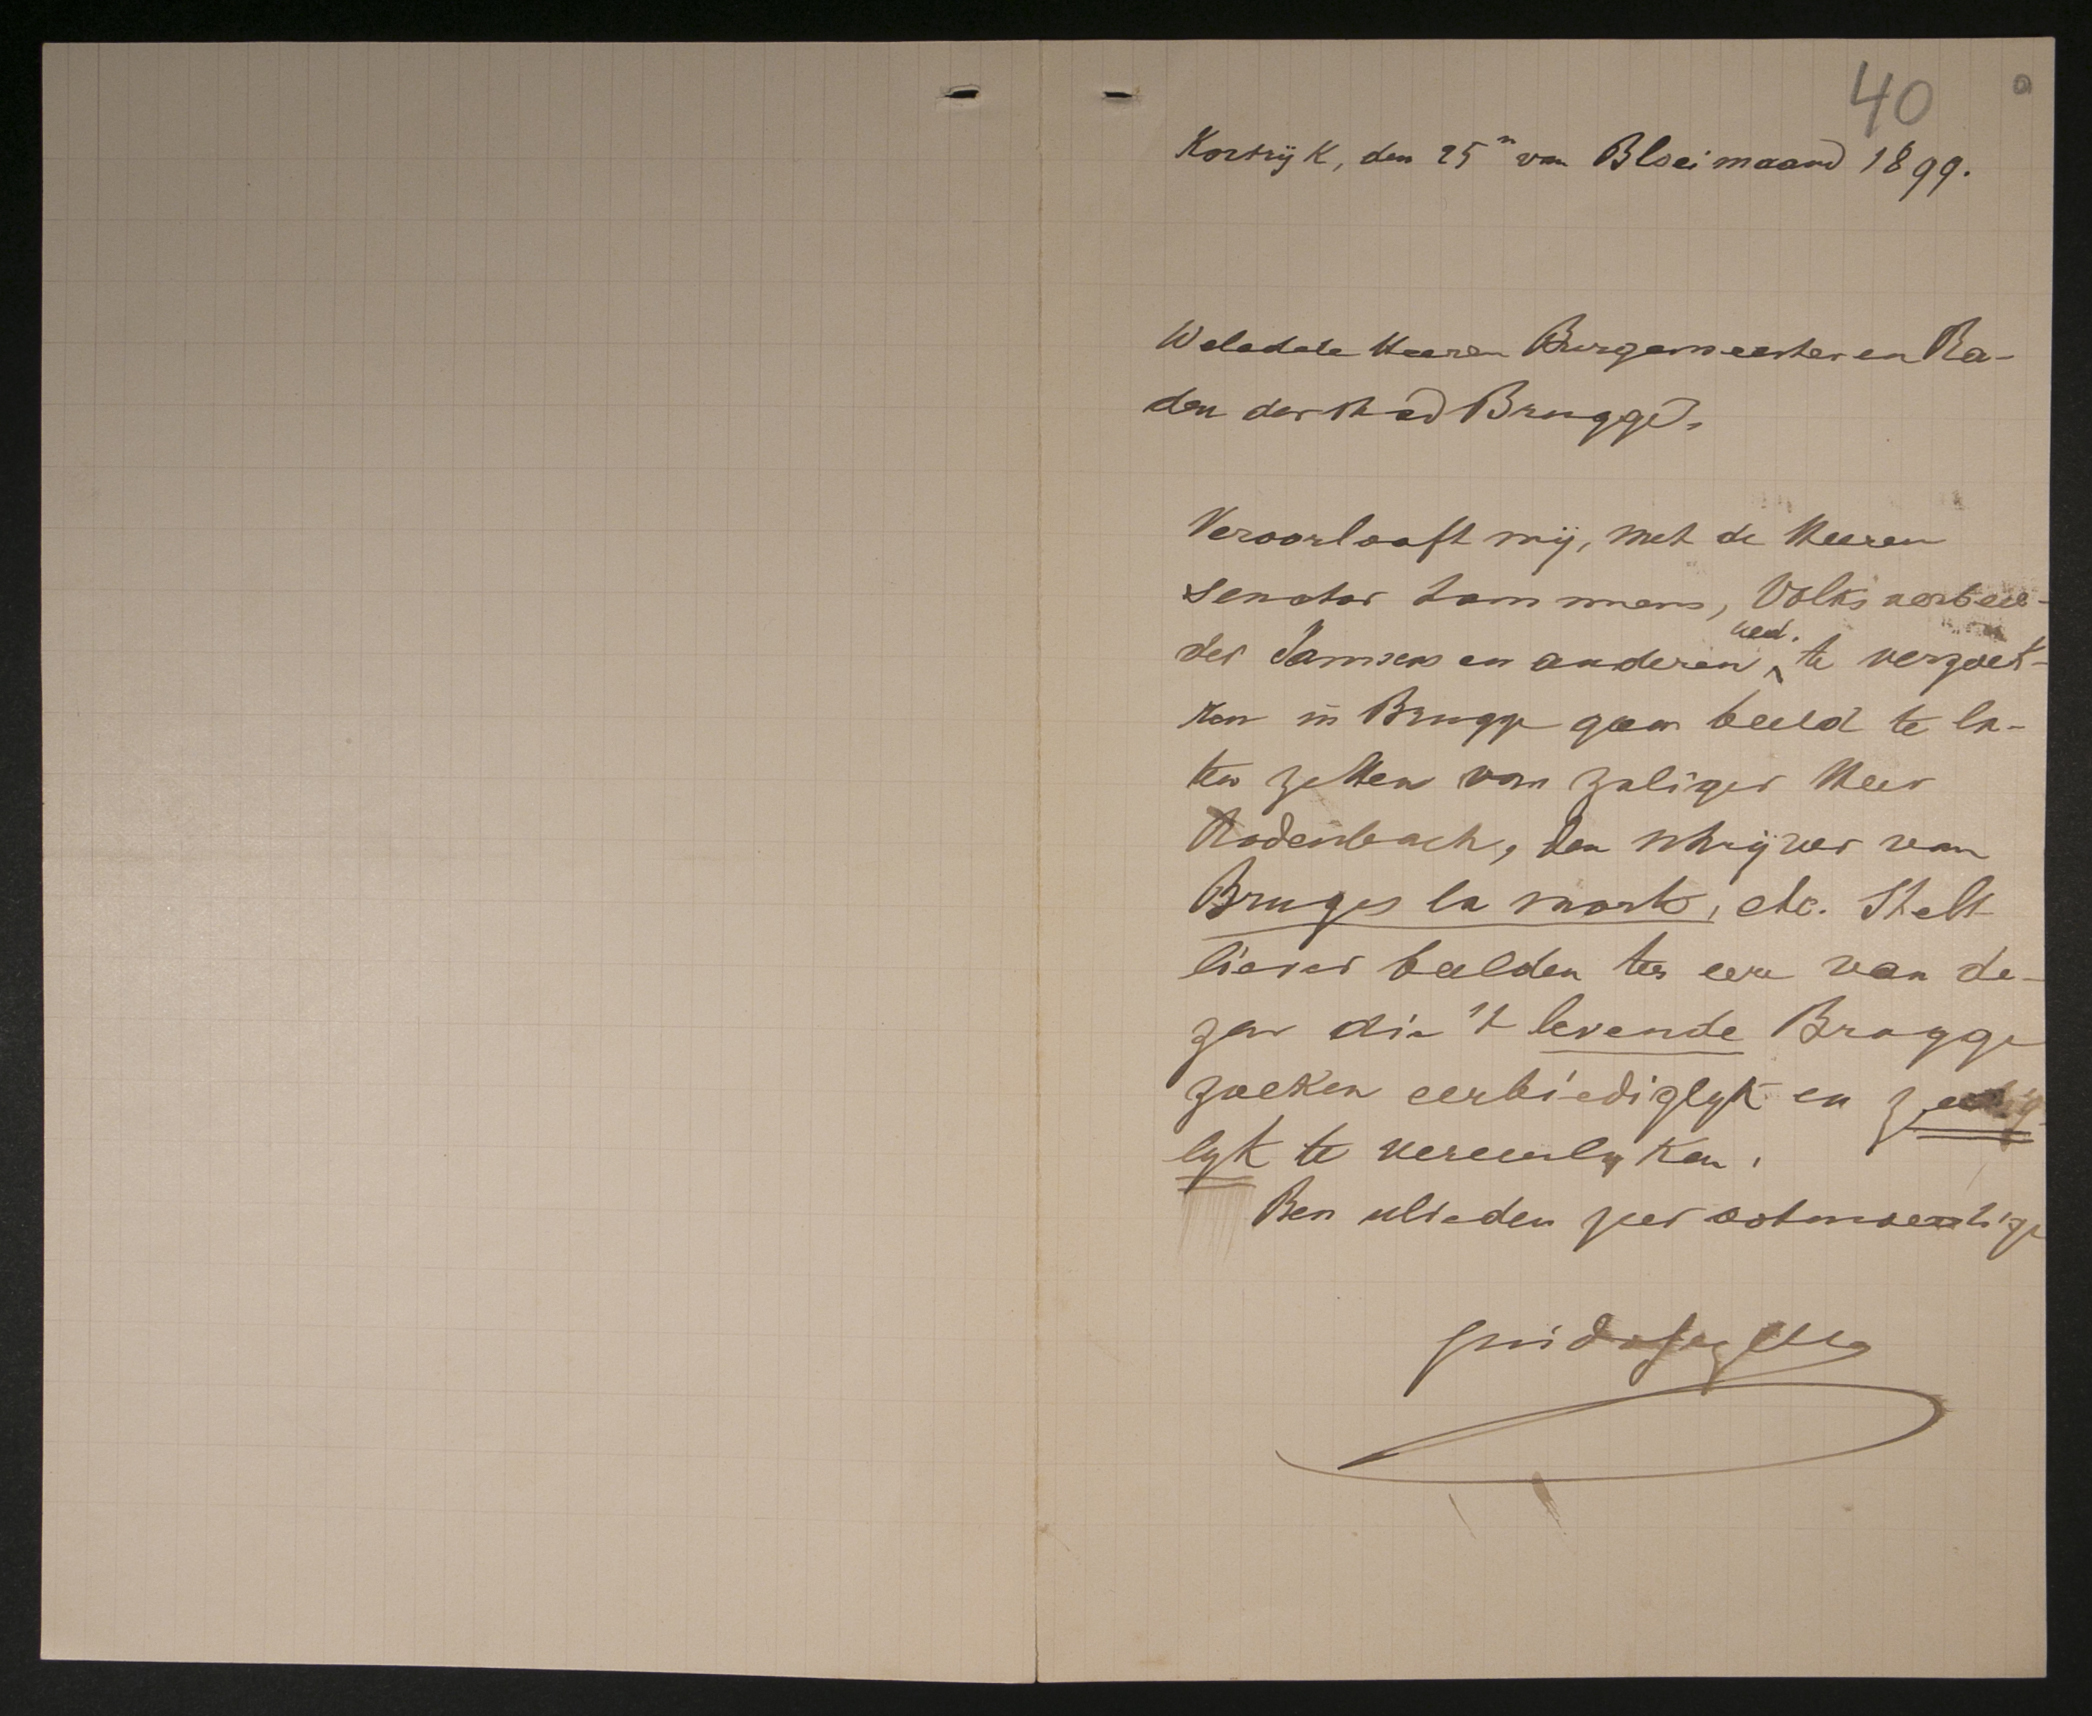 40
Kortrijk, den 25n van Bloeimaand 1899.
Weledele Heeren Burgemeester en Ra-
den der stad Brugge,
Veroorlooft mij, met de Heeren
Senator Lammens, Volksverbeel-
ued.
der Janssens en anderen, te verzoek-
ken in Brugge geen beeld te la-
ten zetten van zaliger Heer
Rodenbach, den schrijver van
Bruges la morte, etc. Stelt
liever beelden ter eere van de-
zen die 't levende Brugge
zoeken eerbiediglyk en
lyk te vereerlyken.
Ben ulieden zeer ootmoedige
Guido Gezelle